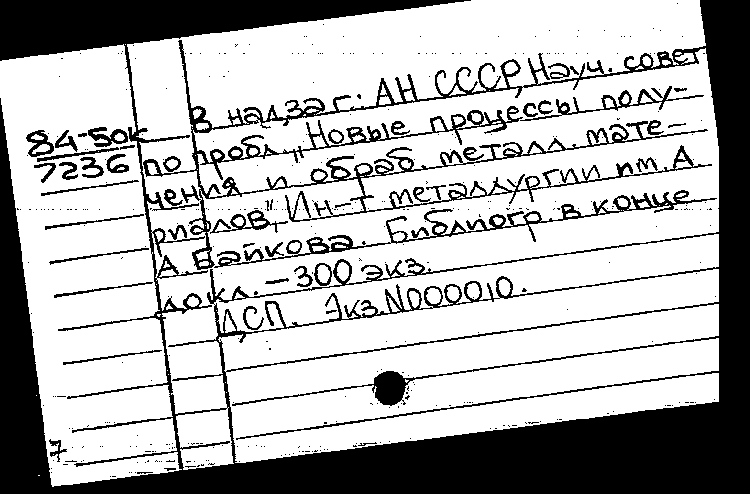 В надзаг.: АН СССР, Науч. совет
84-5ок
7236
по пробл. „Новые процессы полу-
чения и обраб. металл. мате-
риалов", Ин-т металлургии им. А.
А. Байкова. Библиогр в конце
докл. — 300 экз.
ДСП. Экз. N000010.
7